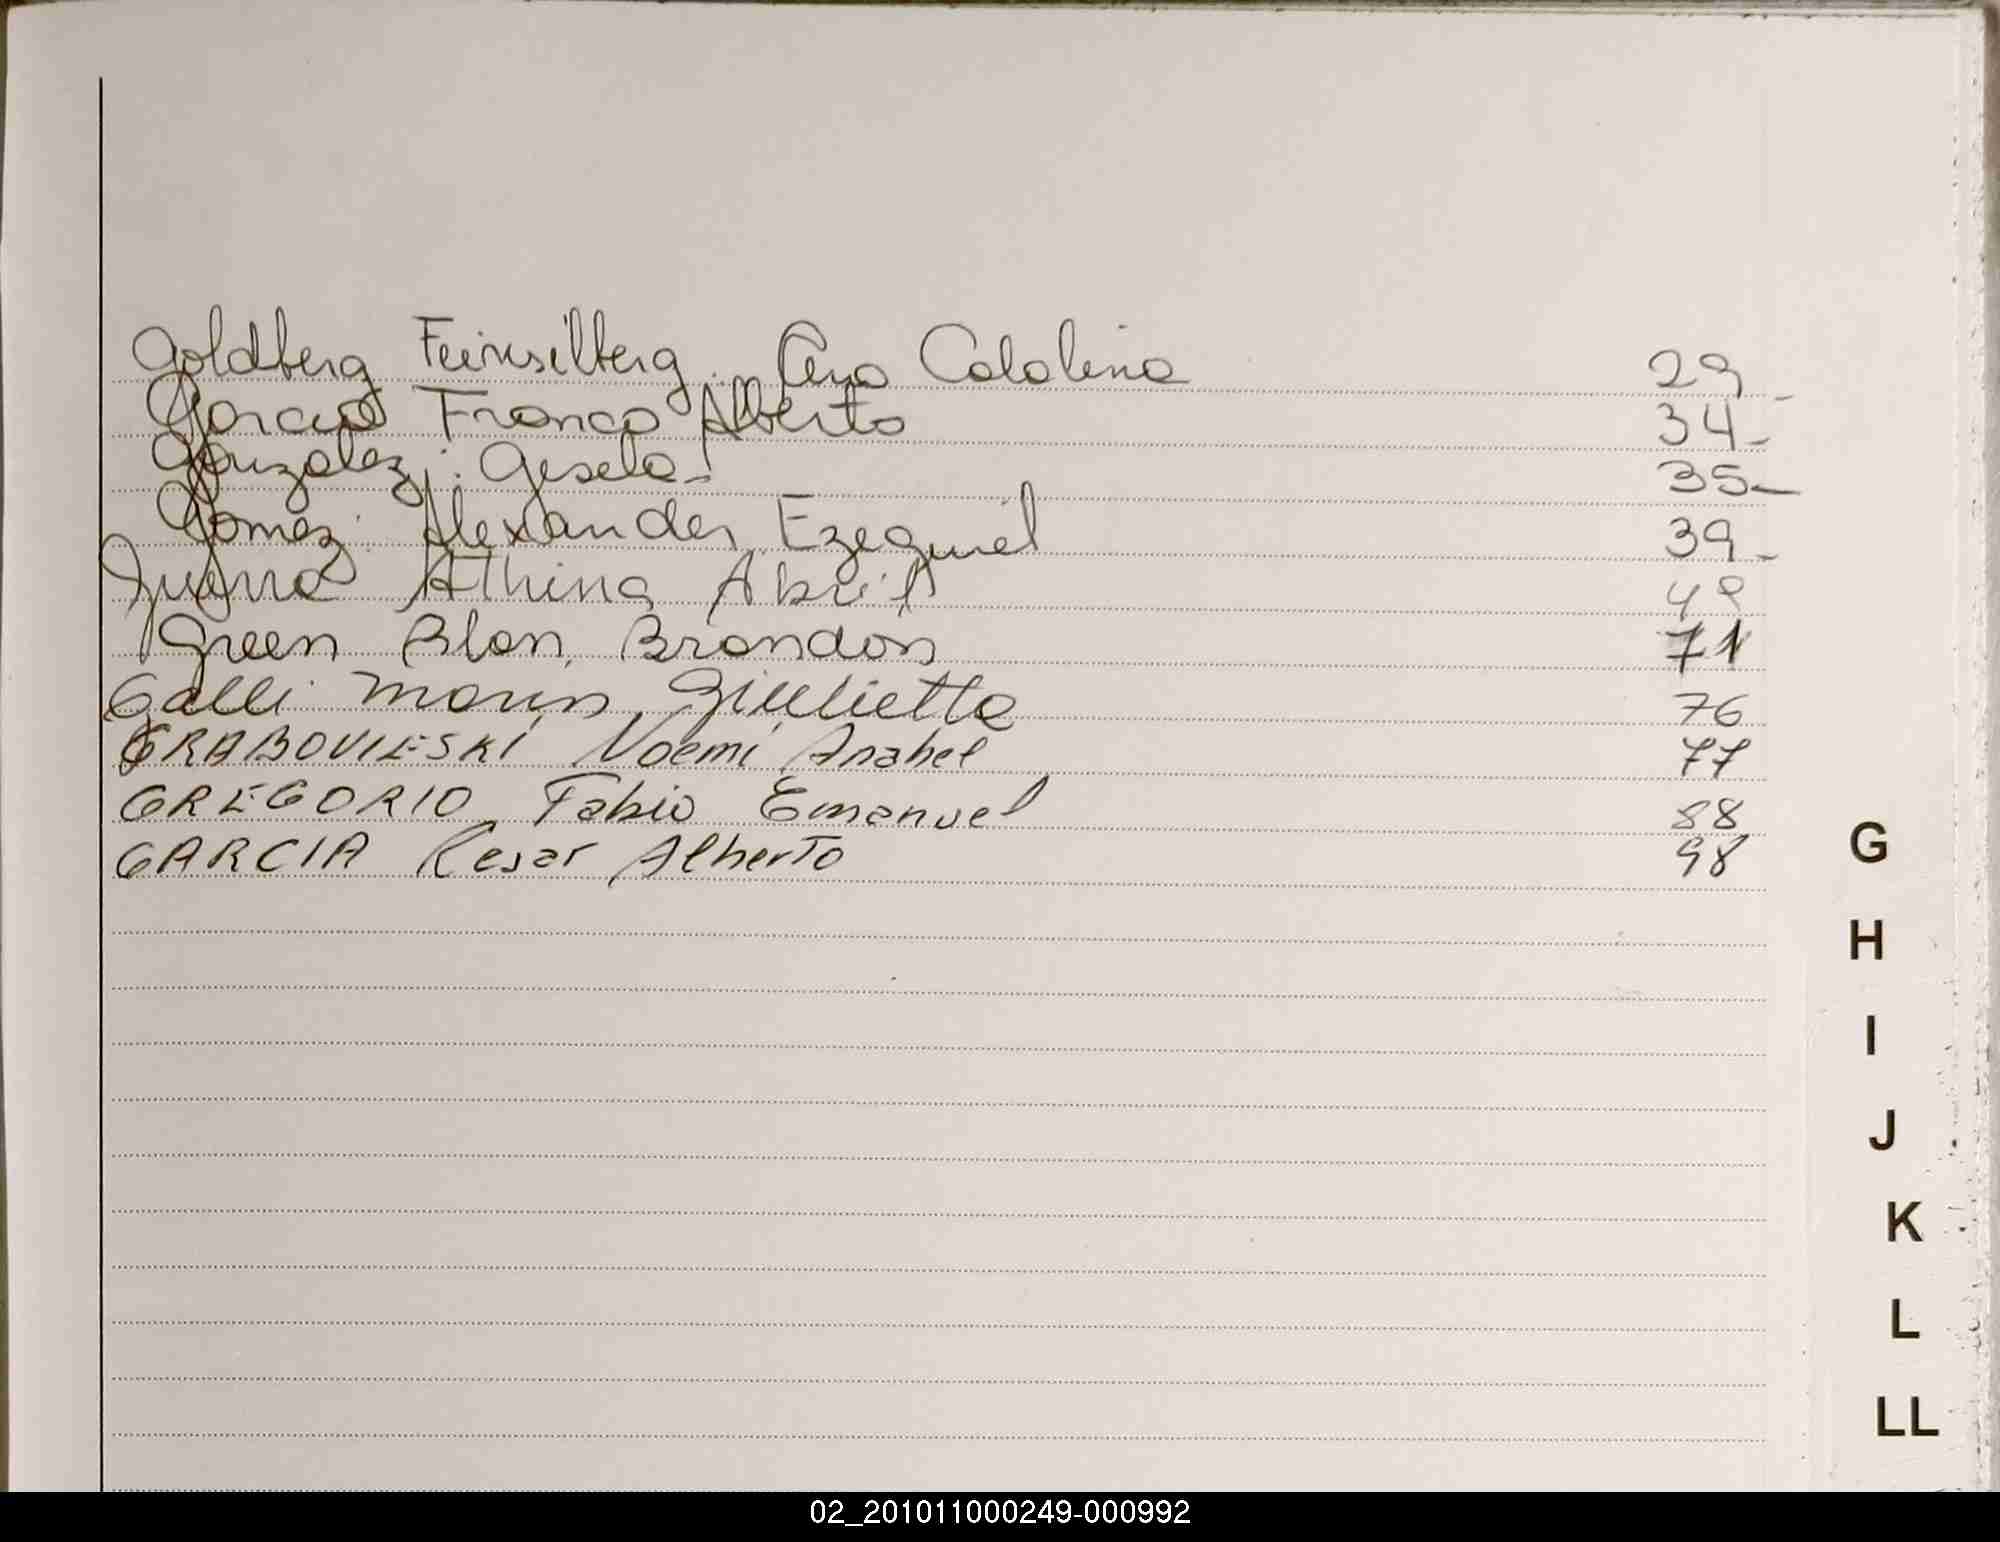 Goldberg Feinsilberg. Ana Catalina 29
Garcia Franco Alberto 34-
Gonzalez: Gisela- 35-
Gomez: Alexander Ezequiel 39-
Athina Abril 49
Green Blan, Brandon 71
Galli Giulietta 76
GRABOVIESKI Noemi Anabel 77
GREGORIO Fabio Emanuel 88
GARCIA Cesar Alberto 98
G
H
I
J
K
L
LL
02_201011000249-000992